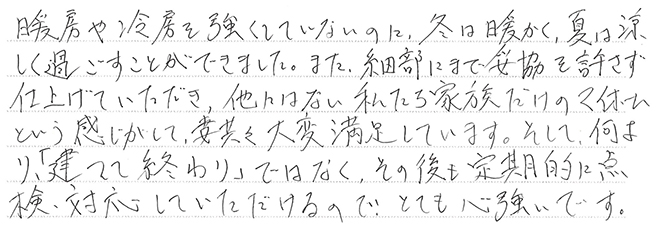 暖房や冷房を強くしていないのに、冬は暖かく、夏は涼
しく過ごすことができました。また、細部にまで妥協を許さず
仕上げていただき、他にはない私たち家族だけのマイホーム
という感じがして、妻共々大変満足しています。そして、何よ
り、「建てて終わり」ではなく、その後も定期的に点
検・対応していただけるので、とても心強いです。